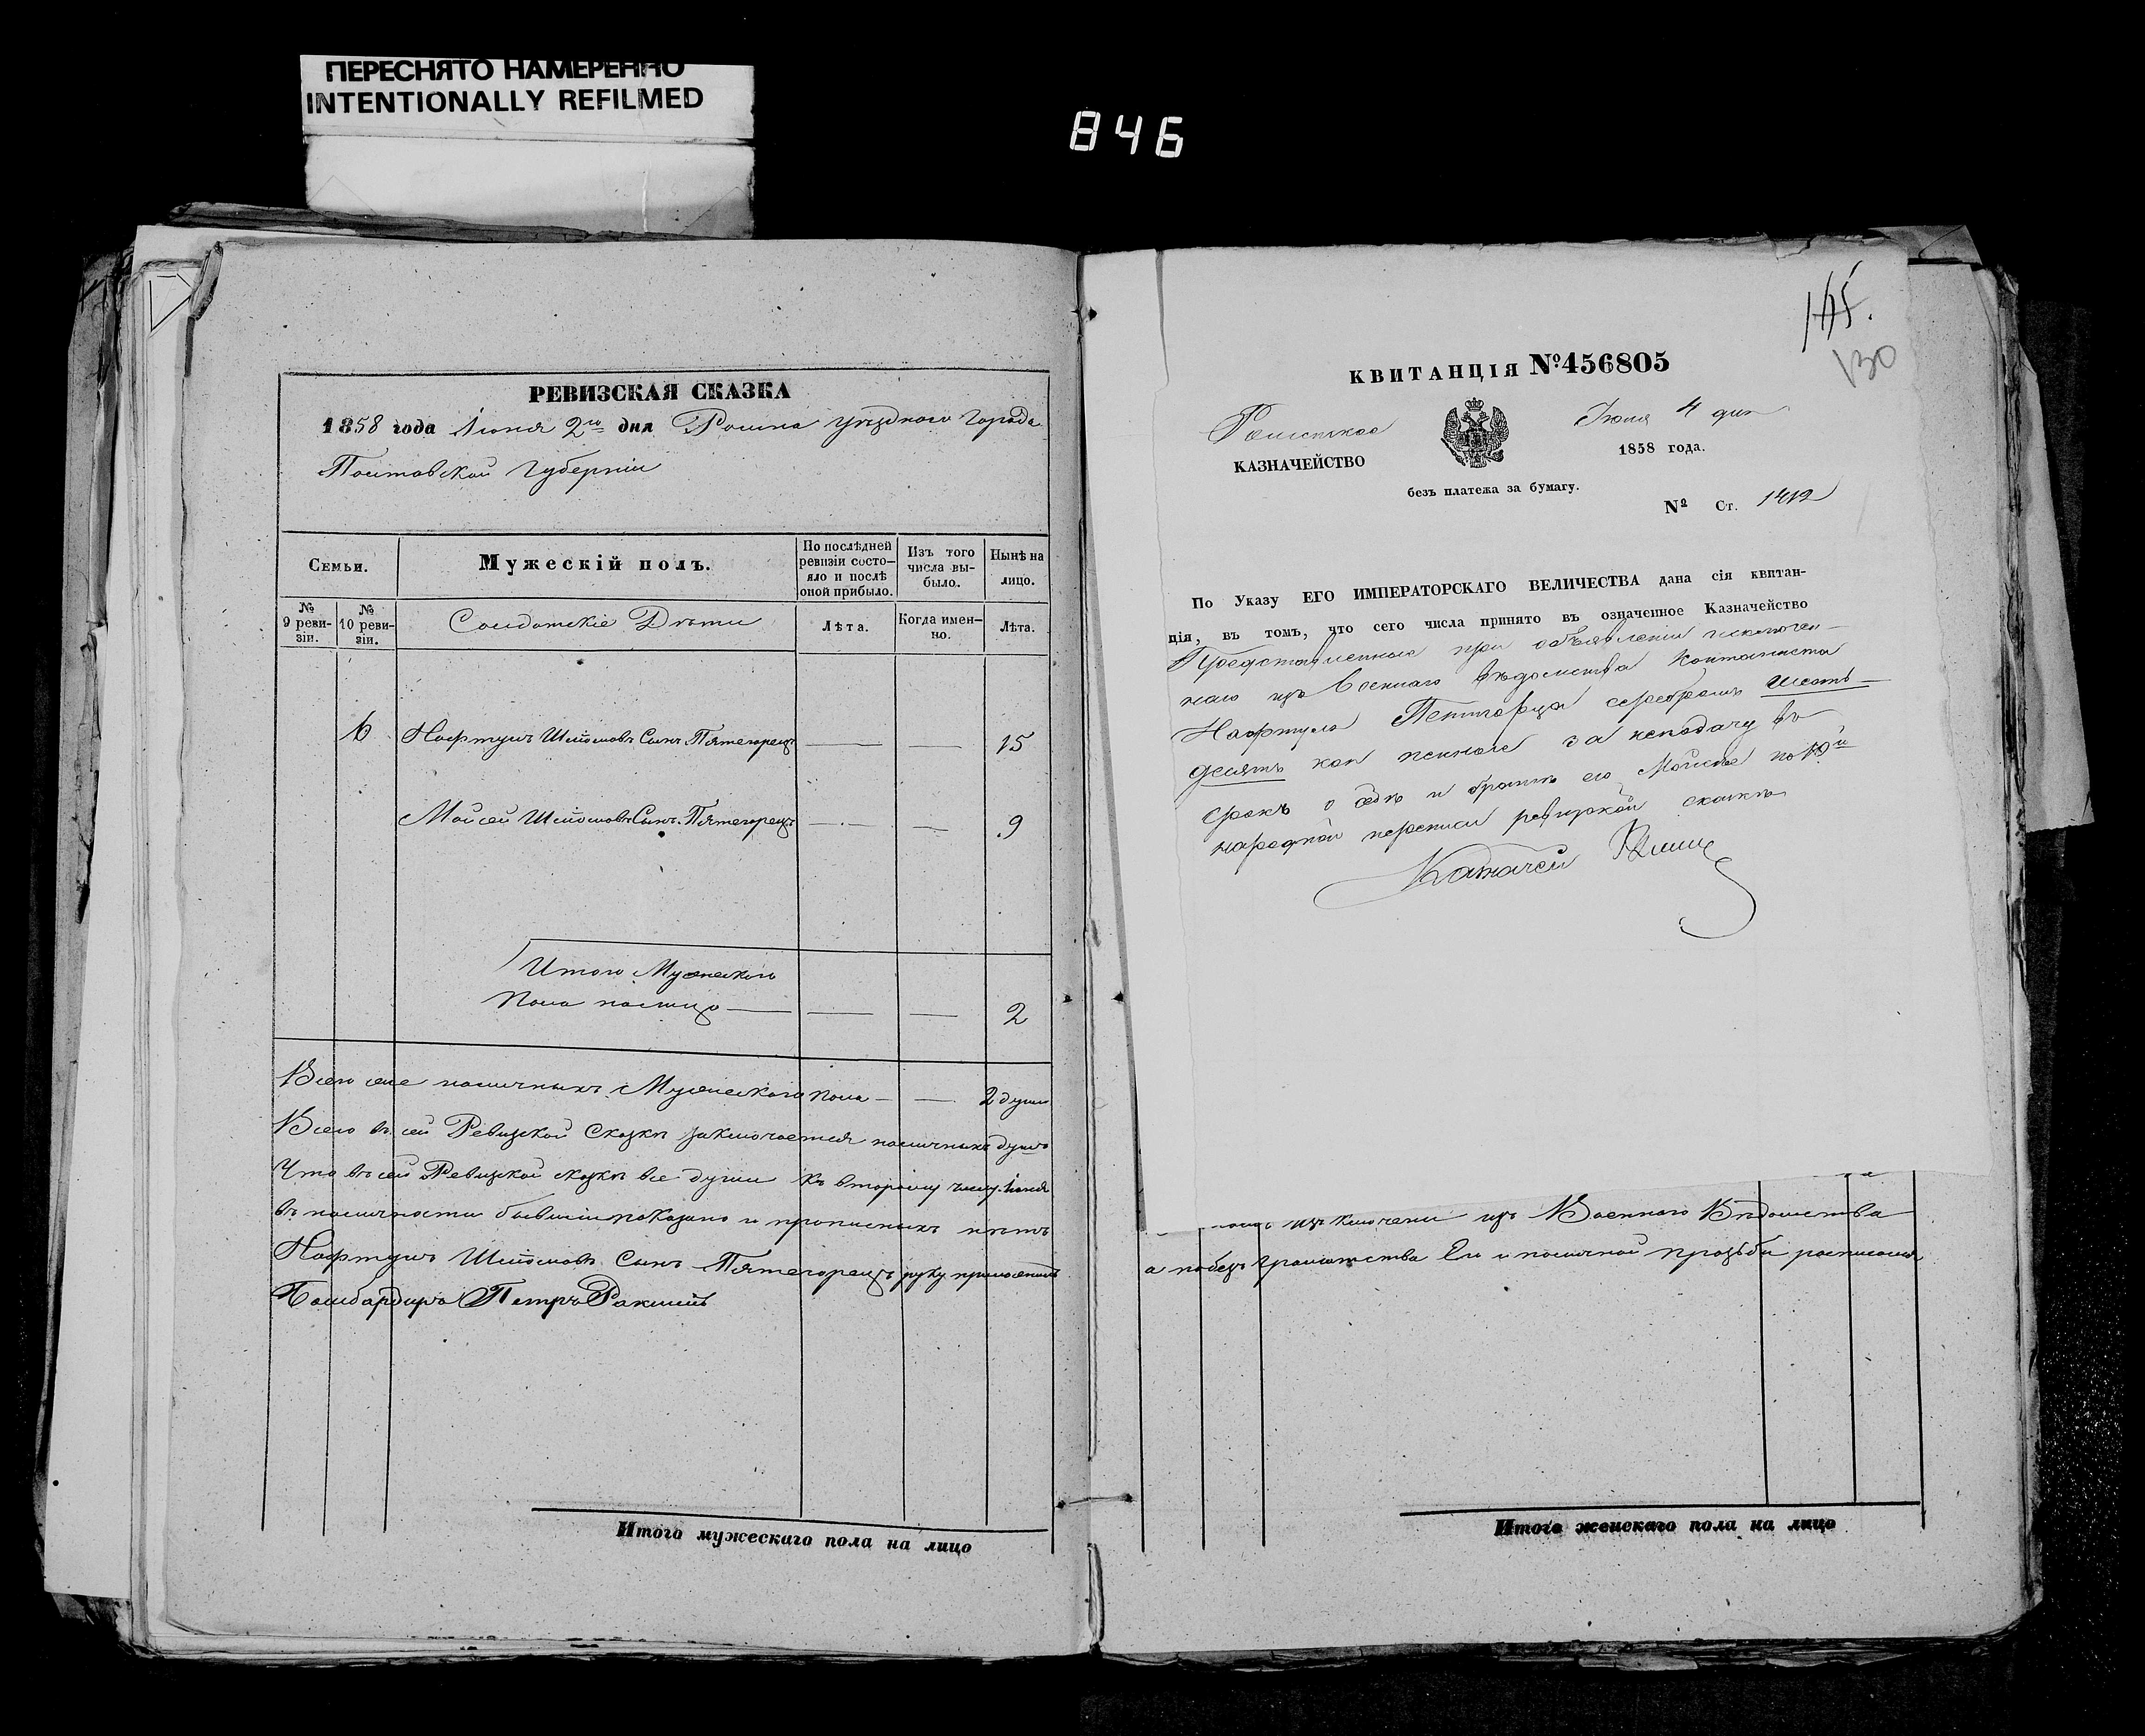 ПЕРЕСНЯТО НАМЕРЕННО
INTENTIONALLY REFILMED
846
РЕВИЗСКАЯ СКАЗКА
1858 года Іюня 2го дня Ромна уѣзднаго города
Полтавской Губерніи
Семьи.
Мужескій полъ.
По послѣдней ревизіи состо-яло и послѣ оной прибыло.
Изъ того числа вы-было.
Нынѣ на лицо.
№ 9 реви-зіи.
№ 10 реви-зіи.
Солдатскіе Дѣти
Лѣта.
Когда имен-но.
Лѣта.
6 Нафтулъ Шліомовъ Сынъ Пятегорецъ — — 15
Мойсей Шліомовъ Сынъ Пятегорецъ — — 9
Итого Мужескаго
Пола налицо — — — 2
Всего же наличныхъ Мужескаго пола — — 2 души
Всего въ сей Ревизской Сказкѣ заключается наличныхъ душъ
Что въ сей Ревизской сказкѣ все души къ второму числу Іюня
въ наличности бывшіи показано и прописныхъ нѣтъ
Нафтулъ Шліомовъ Сынъ Пятегорецъ руку приложилъ
Бомбардиръ Петръ
155.
130
КВИТАНЦІЯ №456805
Роменское
КАЗНАЧЕЙСТВО
Іюля 4 дня
1858 года.
безъ платежа за бумагу.
№ Ст. 1412
По Указу ЕГО ИМПЕРАТОРСКАГО ВЕЛИЧЕСТВА дана сія квитан-
ція, въ томъ, что сего числа принято въ означенное Казначейство
Представленные при объявленіи исключен-
наго изъ Военнаго вѣдомства Кантониста
Нафтула серебромъ шесть-
десятъ коп пенныхъ за неподачу въ
срокъ о себѣ и братѣ его Мойсѣе по 10й
народной переписи ревизской сказки
Казначей
изключени изъ Военнаго Вѣдомства
а по безграмотства Ево и по личной прозьбы росписался
Итого мужескаго пола на лицо
Итого женскаго пола на лицо